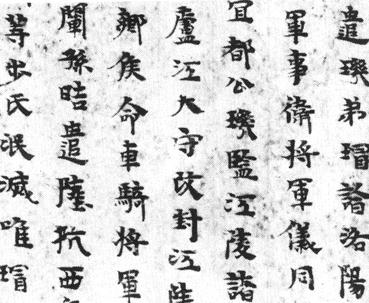 遣璣弟瑁詣洛陽
軍事衛將軍儀同
宜都公璣監江陵諸
盧江大守改封江陵
鄉侯命車騎將軍
闡孫晧遣陸抗西
等步氏泯滅唯瑁